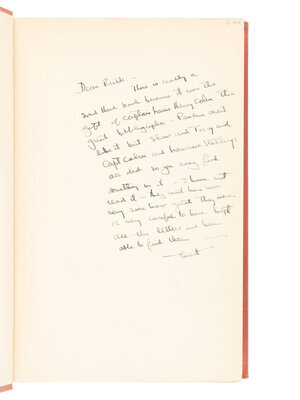 Dear Ruth -
This is really a
second hand book because it was the
gift of Captain Louis Henry Cohn the
great bibliographer - Pauline didn't
like it but Shaw and Terry and
Capt Cohn and Lawrence Stallings
all did so you may find
something in it. - I have not
read it - They must have been
very sure how great they were
or very careful to have kept
all the letters and been
able to find them
- Ernest